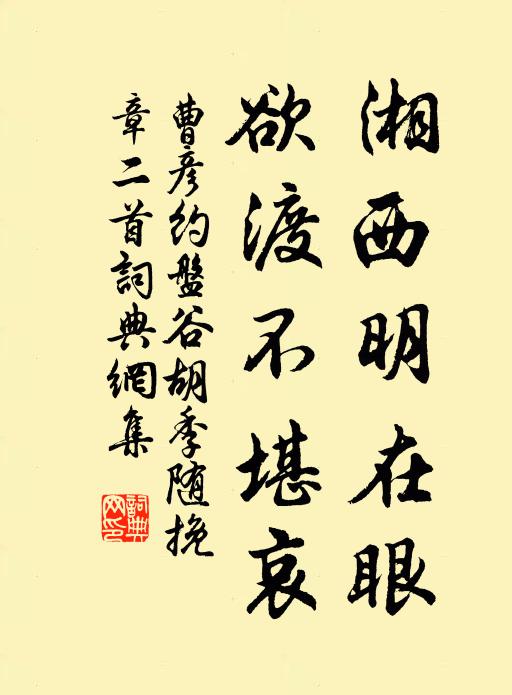 湘西明在眼
欲渡不堪哀
曹彦約盤谷胡季随挽
章二首詞典網集
詞典
网印